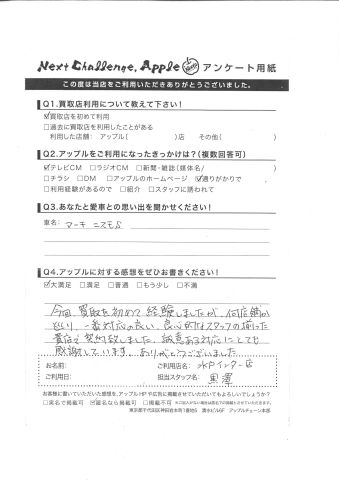 Next Challenge. Apple アンケート用紙
この度は当店をご利用いただきありがとうございました。
Q1.買取店利用について教えて下さい!
☑買取店を初めて利用
□過去に買取店を利用したことがある
利用した店舗: アップル( )店 その他( )
Q2.アップルをご利用になったきっかけは?(複数回答可)
☑テレビCM □ラジオCM □新聞・雑誌(媒体名/ )
□チラシ □DM □アップルのホームページ ☑通りがかりで
□利用経験があるので □紹介 □スタッフに誘われて
Q3.あなたと愛車との思い出を聞かせください!
車名: マーチ ニスモS
Q4.アップルに対する感想をぜひお書きください!
☑大満足 □満足 □普通 □もう少し □不満
今回、買取を初めて経験しましたが、何店舗か
まわり、一番対応の良い、良心的なスタッフの揃った
貴店で契約致しました。誠意ある対応にとても
感謝しています。ありがとうございました
お名前: ご利用店名: 水戸インター店
ご利用日: 担当スタッフ名: 黒澤
お客様に書いていただいた感想を、アップルHPや広告に掲載させていただいてもよろしいでしょうか?
□実名で掲載可 ☑匿名なら掲載可 □掲載不可 ※ご記入がない場合は匿名での掲載とさせていただきます。
東京都千代田区神田岩本町1番地5 清水ビル6F アップルチェーン本部